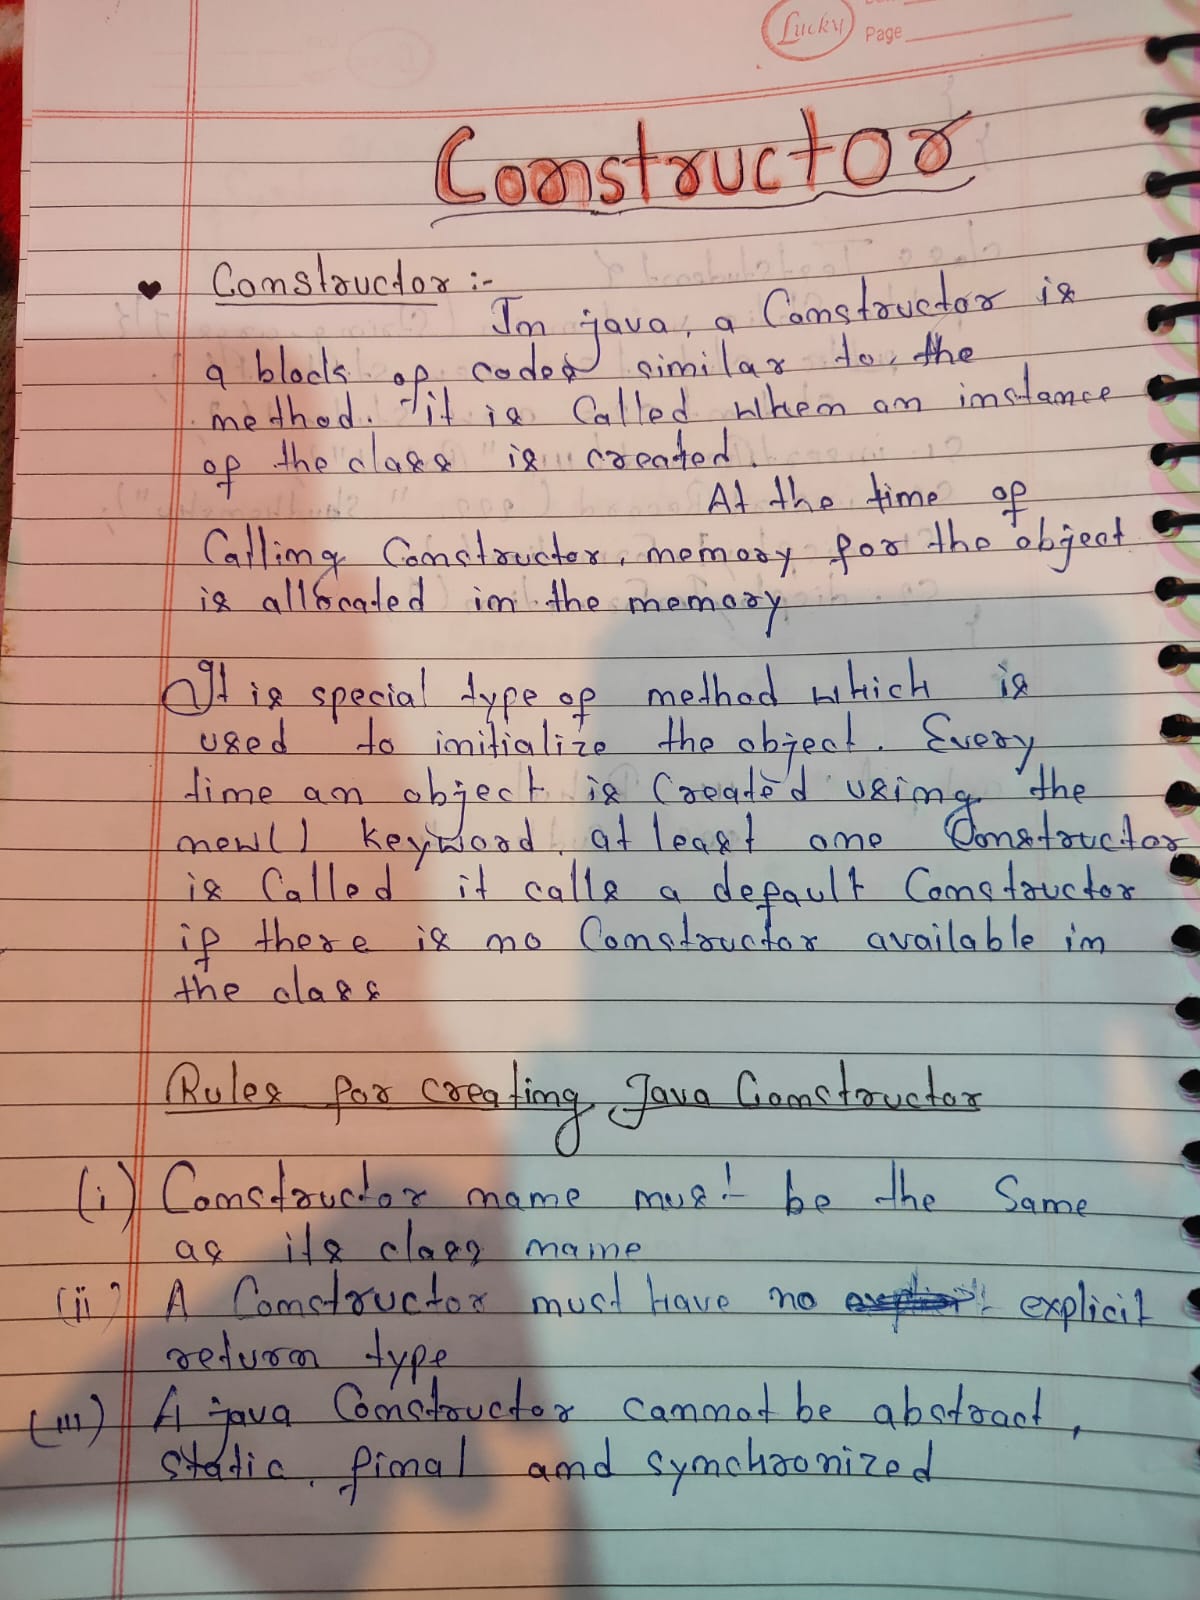 Lucky
Page
Constructor
Constructor :-
In java, a Constructor is
a block of codes similar to the
method. it is Called when an instance
of the class is created.
At the time of
Calling Constructor, memory for the object
is allocated in the memory
It is special type of method which is
used to initialize the object. Every
time an object is Created using the
new() keyword, at least one Constructor
is Called it calls a default Constructor
if there is no Constructor available in
the class
Rules for creating Java Constructor
(i) Constructor name must be the Same
as its class name
(ii) A Constructor must have no explicit
return type
(iii) A java Constructor cannot be abstract,
static, final and synchronized